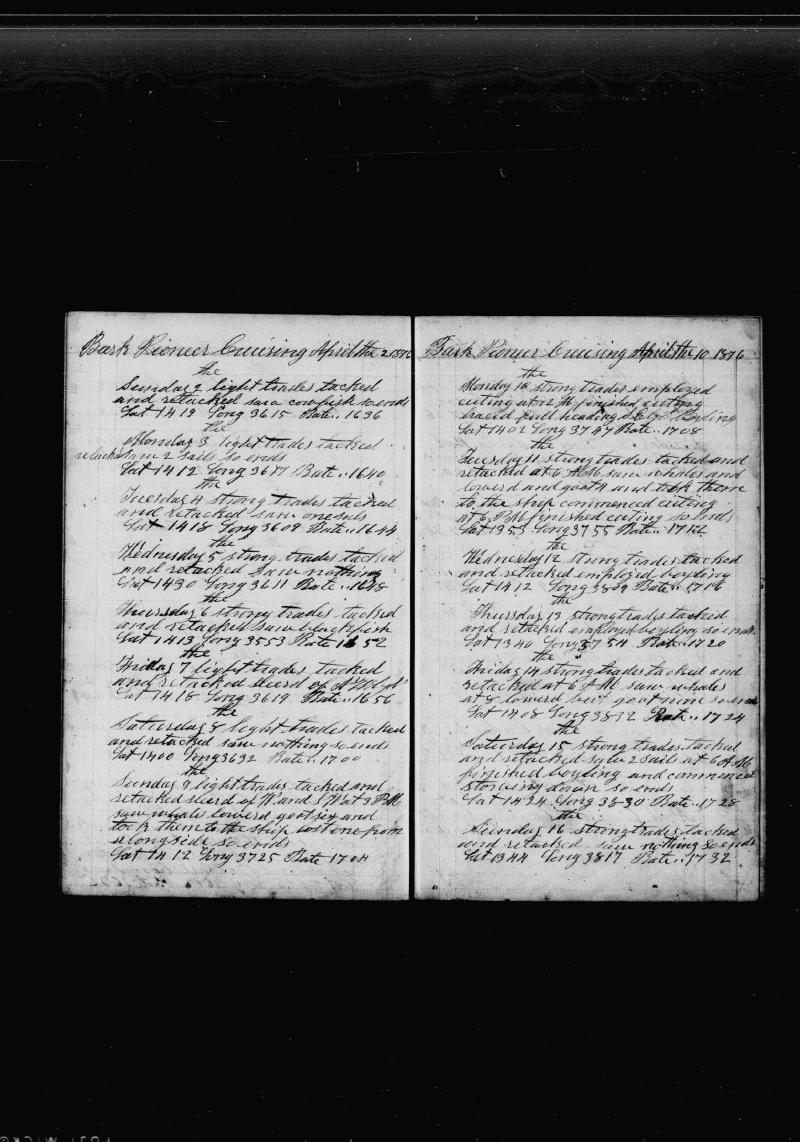 Bark Pioneer Cruising April the 2 1876
the
Sunday 2 light trades tacked
and retacked saw cowfish so ends
Lat 1419 Long 3615 Rate .. 1636
the
Monday 3 light trades tacked
retacked saw 2 sails so ends
Lat 1412 Long 3617 Rate .. 1640
the
Tuesday 4 strong trades tacked
and retacked saw one sail
Lat 1418 Long 3609 Rate .. 1644
the
Wednesday 5 strong trades tacked
and retacked saw nothing
Lat 1430 Long 3611 Rate .. 1648
the
Thursday 6 strong trades tacked
and retacked saw blackfish
Lat 1413 Long 3553 Rate 1652
the
Friday 7 light trades tacked
and retacked steerd
Lat 1418 Long 3619 Rate .. 1656
the
Saturday 8 light trades tacked
and retacked saw nothing so ends
Lat 1400 Long 3632 Rate .. 1700
the
Sunday 9 light trades tacked and
retacked steerd W and S W at 3 PM
saw whales lowerd got six and
took them to the ship lost one from
alongside so ends
Lat 1412 Long 3725 Rate 1704
Bark Pioneer Cruising April the 10 1876
the
Monday 10 strong trades employed
cuting at 12 M finished cutting
braced full heading
Lat 1402 Long 3747 Rate .. 1708
the
Tuesday 11 strong trades tacked and
retacked at 6 AM saw whales and
lowerd and got 4 and took them
to the ship commenced cuting
at 6 PM finished cuting so ends
Lat 1353 Long 3755 Rate .. 1712
the
Wednesday 12 strong trades tacked
and retacked employed boyling
Lat 1412 Long 3809 Rate .. 1716
the
Thursday 13 strong trades tacked
and retacked employed boyling so ends
Lat 1340 Long 3754 Rate .. 1720
the
Friday 14 strong trades tacked and
retacked at 6 AM saw whales
at 8 lowerd but got none so ends
Lat 1408 Long 3832 Rate .. 1724
the
Saturday 15 strong trades tacked
and retacked saw 2 sails at 6 AM
finished boyling and commenced
stowing down so ends
Lat 1424 Long 3830 Rate .. 1728
the
Sunday 16 strong trades tacked
and retacked saw nothing so ends
Lat 1344 Long 3817 Rate .. 1732